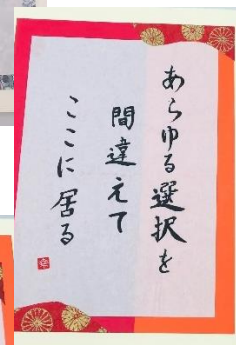 あらゆる選択を
間違えて
ここに居る